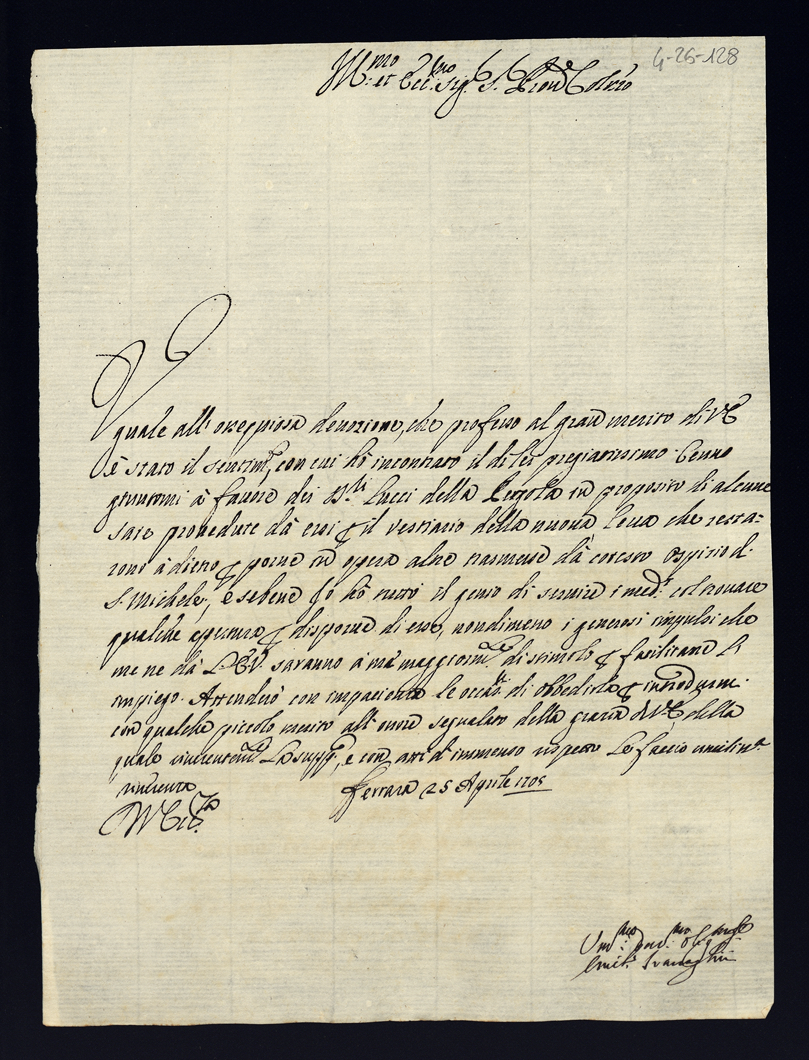 4-26-128
Ill:mo et Ecc:mo Sig. S. Pron
Uguale all'ossequiosa devozione, che professo al gran merito di VE
è stato il sentim:to, con cui hò incontrato il di lei pregiatissimo Cenno
à favore dei SS.ri Lucci della Pergola in proposito di alcune
sate provedute dà essi il vestiario della nuova Leva che resta-
rono à dietro porne in opera altre trasmesse dà cotesto Ospizio di
S. Michele, e sebene Io hò tutto il genio di servire i med:i col trovare
qualche apertura disporne di esse, nondimeno i generosi impulsi che
me ne dà L'E.V. saranno à mè maggiorm:te di stimolo facilitane l'
impiego. Attenderò con impacienza le occas:i di obbedirla introdurmi
con qualche piccolo merito all'onore segnalato della grazia di VE della
quale vivamente La supp:co, e con atti d'immenso rispetto Le faccio umilim:a
riverenza
Ferrara 25 Aprile 1705
VV Ecc:za
Um:mo Dev:mo Obg:mo